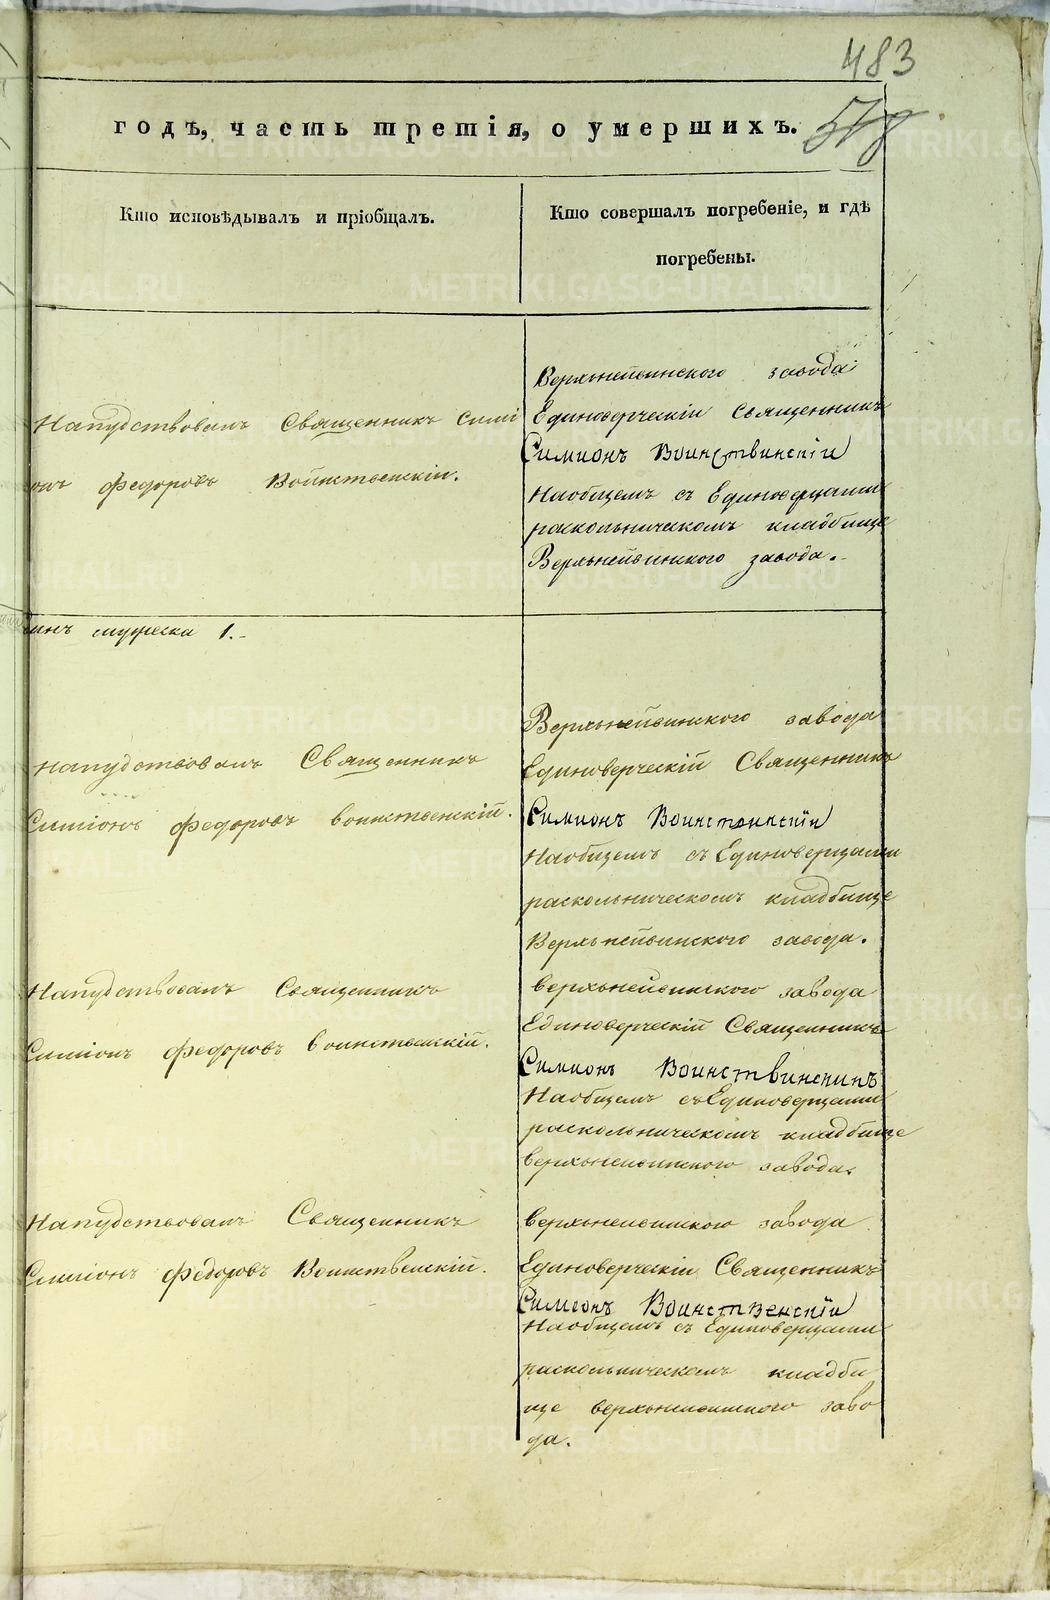 483
годъ, часть третія, о умершихъ.
Кто исповѣдывалъ и пріобщалъ.
Кто совершалъ погребеніе, и гдѣ
погребены.
Верхнейвинского завода
Единоверческій Священникъ
Симионъ Воинствинскіи
Наобщемъ съ Единоверцами
раскольническомъ кладбище
Верхьнейвинского завода.
Напудствовалъ Священникъ Симі
онъ Федоровъ Воинственскій.
1.
Верхьнейвинского завода
Единоверческій Священникъ
Симионъ Воинствинскіи
Наобщемъ съ Единоверцами
раскольническомъ кладбище
Верхьнейвинского завода.
Напудствовалъ Священникъ
Симіонъ Федоровъ Воинственскій.
верхьнейвинского завода
Единоверческій Священникъ
Симионъ Воинствинскиъ
Наобщемъ съ Единоверцами
раскольническомъ кладбище
верхьнейвинского завода.
Напудствовалъ Священникъ
Симіонъ Федоровъ Воинственскій.
верхьнейвинского завода
Единоверческіи Священникъ
Симеонъ Воинственскіи
Наобщемъ съ Единоверцами
раскольническомъ кладби
ще верхьнейвинского заво
да.
Напудствовалъ Священникъ
Симіонъ Федоровъ Воинственскій.
METRIKI.GASO-URAL.RU